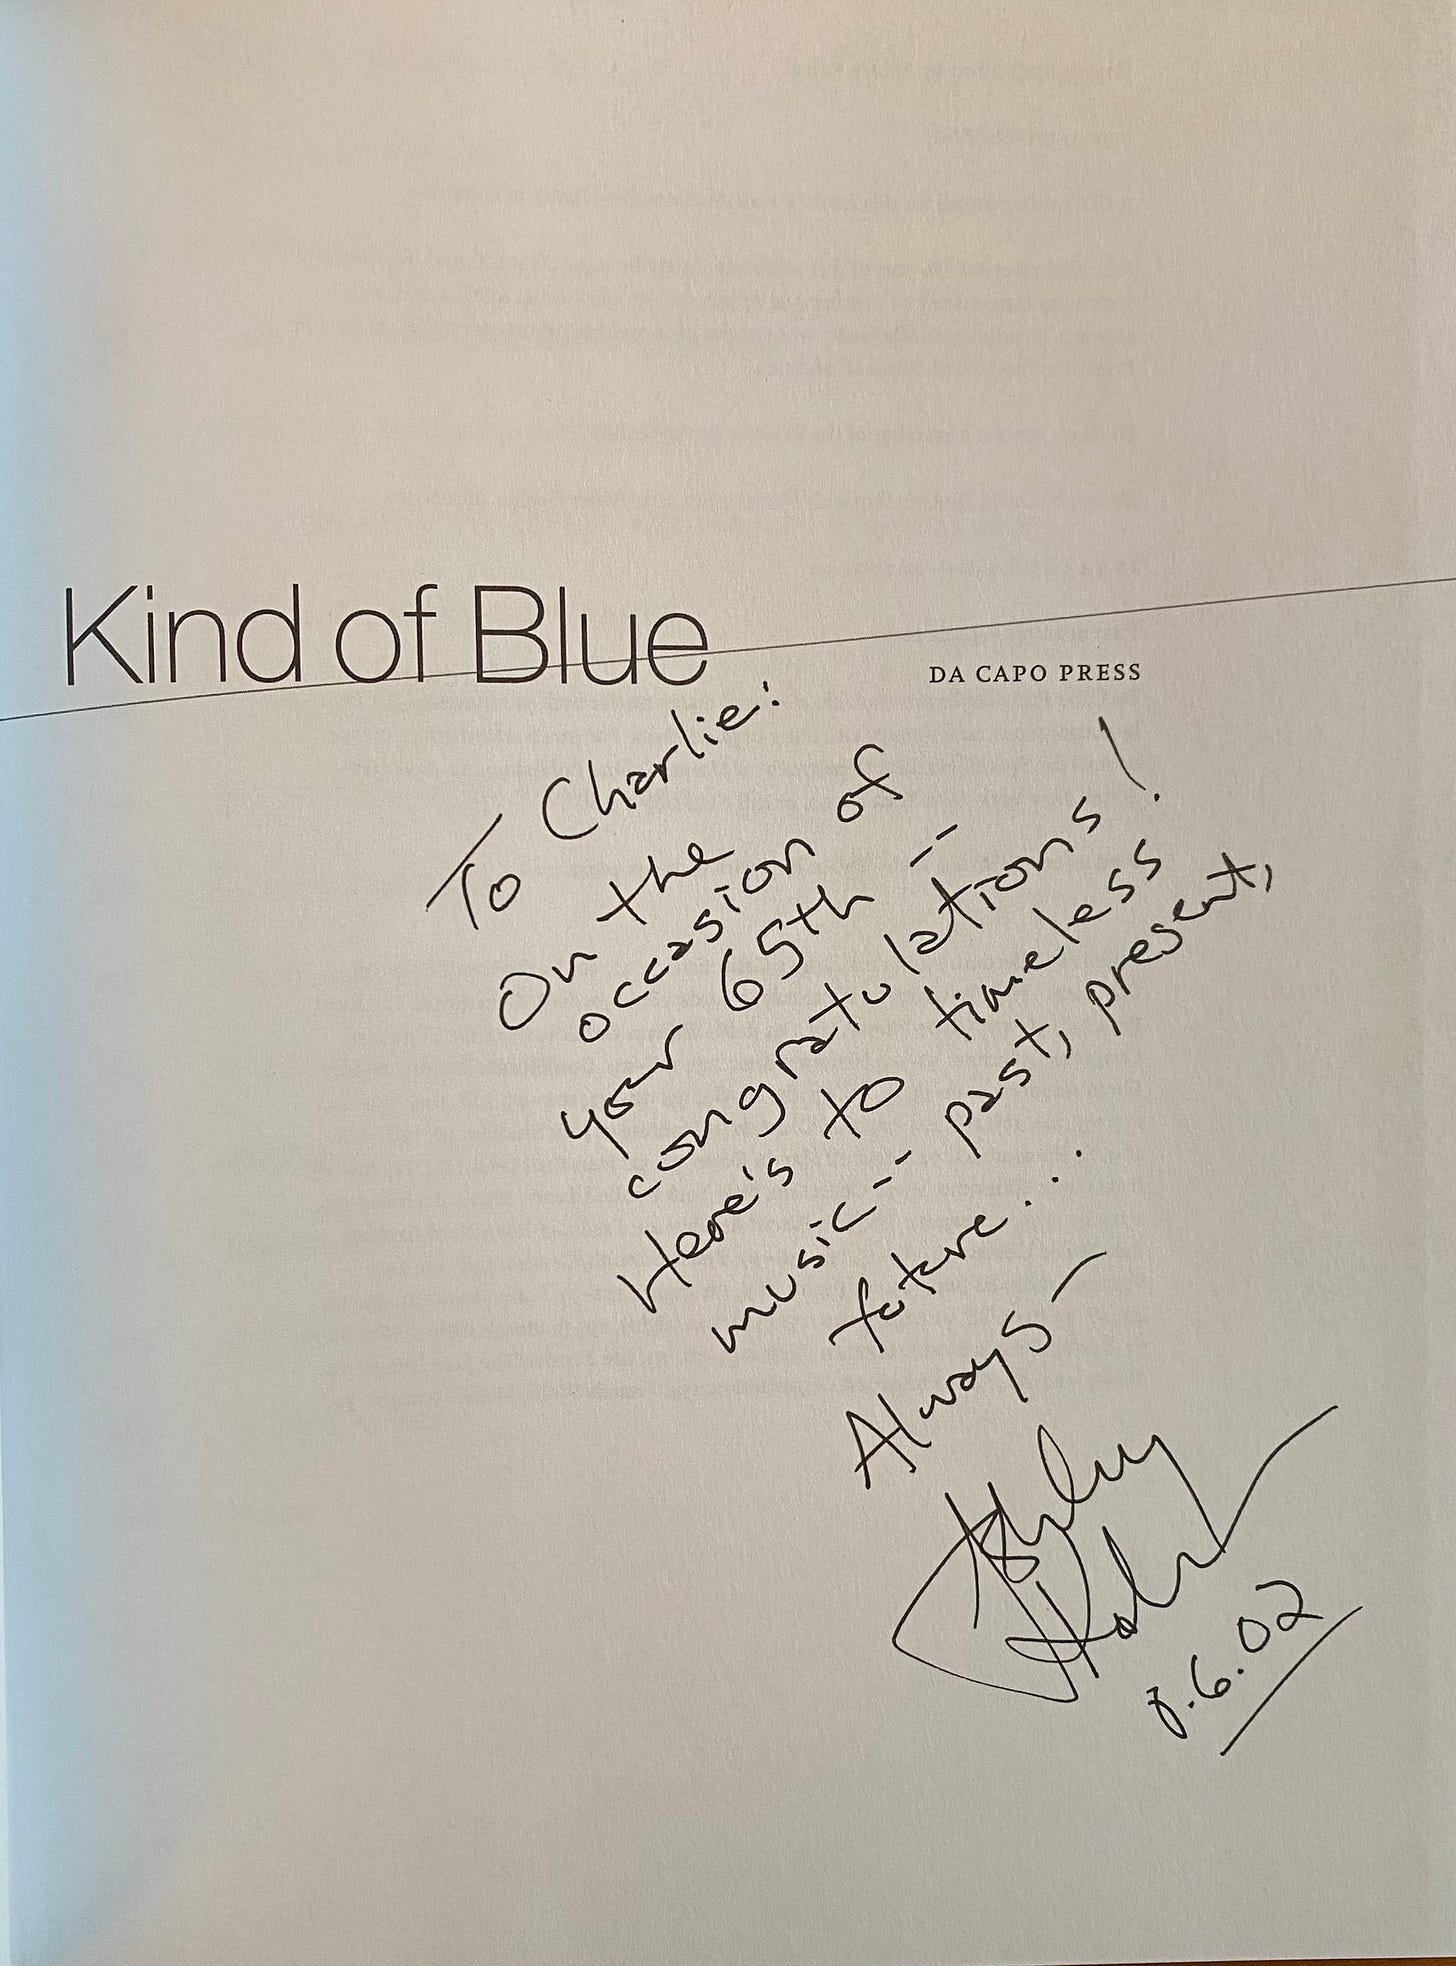 Kind of Blue
DA CAPO PRESS
To Charlie:
On the
occasion of
your 65th --
congratulations!
Here's to timeless
music -- past, present,
future...
Always -
Ashley
Kahn
8.6.02